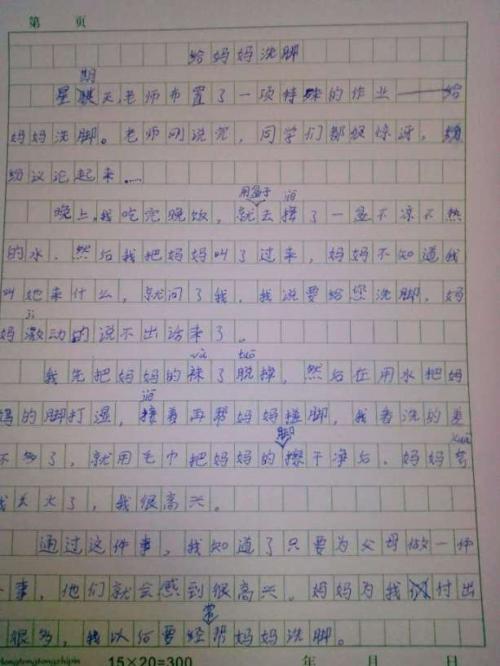 第 页
给妈妈洗脚
星期天,老师布置了一项特殊的作业——给
妈妈洗脚。老师刚说完,同学们都很惊讶,纷
纷议论起来……
晚上,我吃完晚饭,就用盆子去接jiē了一盆不凉不热
的水,然后我把妈妈叫了过来,妈妈不知道我
叫她来什么,就问了我,我说要给您洗脚,妈
妈激jī动的说不出话来了。
我先把妈妈的袜wà了脱tuō掉,然后在用水把妈
妈的脚打湿,接jiē着再帮妈妈搓脚,我看洗的差
不多了,就用毛巾把妈妈的脚擦干净后,妈妈夸kuā
我长大了,我很高兴。
通过这件事,我知道了只要为父母做一件
事,他们就会感到很高兴。妈妈为我付出
很多,我以后要经常帮妈妈洗脚。
15×20=300 年 月 日